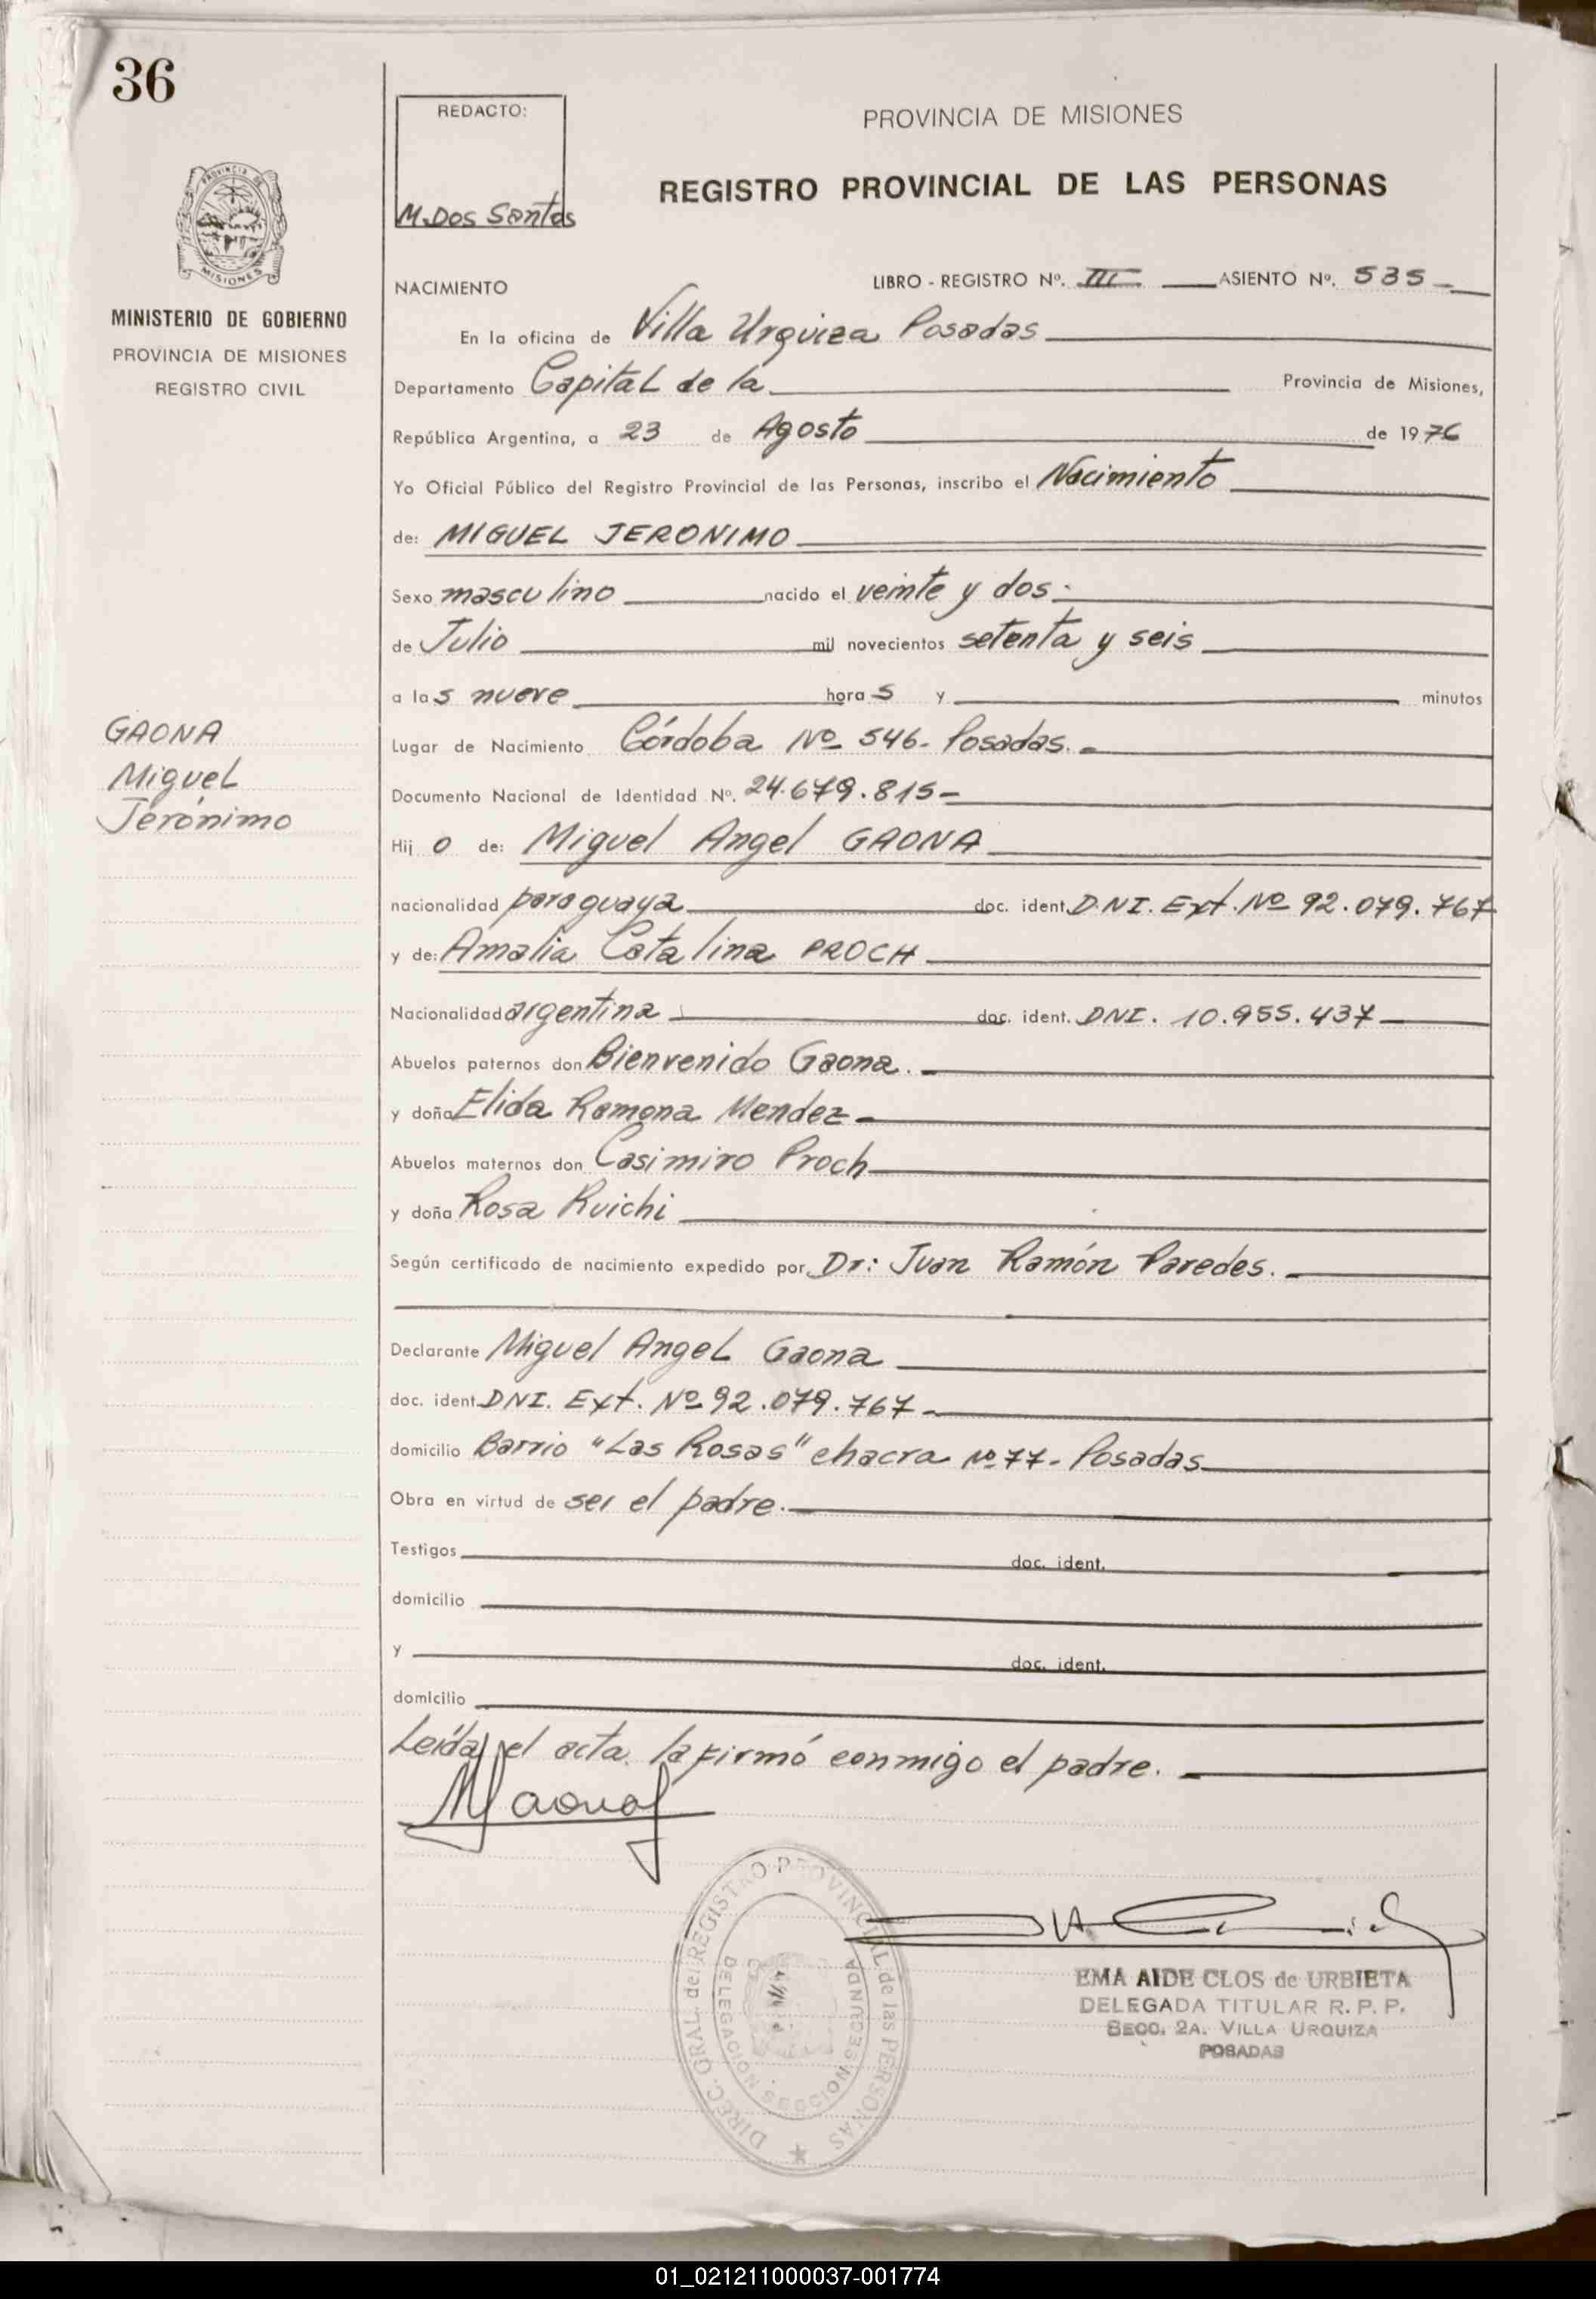 36
REDACTO:
M. Dos Santos
PROVINCIA DE MISIONES
REGISTRO PROVINCIAL DE LAS PERSONAS
PROVINCIA DE
MISIONES
MINISTERIO DE GOBIERNO
PROVINCIA DE MISIONES
REGISTRO CIVIL
NACIMIENTO LIBRO - REGISTRO Nº. III ASIENTO Nº. 535
En la oficina de Villa Urquiza Posadas
Departamento Capital de la Provincia de Misiones,
República Argentina, a 23 de Agosto de 1976
Yo Oficial Público del Registro Provincial de las Personas, inscribo el Nacimiento
de: MIGUEL JERONIMO
Sexo masculino nacido el veinte y dos.
de Julio mil novecientos setenta y seis
a las nueve horas y minutos
Lugar de Nacimiento Córdoba Nº 546. Posadas.
GAONA
Miguel
Jerónimo
Documento Nacional de Identidad Nº. 24.679.815
Hijo de: Miguel Angel GAONA
nacionalidad paraguaya doc. ident. D.N.I. Ext. Nº 92.079.767
y de: Amalia Catalina PROCH
Nacionalidad argentina doc. ident. DNI. 10.955.437
Abuelos paternos don Bienvenido Gaona.
y doña Elida Ramona Mendez
Abuelos maternos don Casimiro Proch
y doña Rosa Ruichi
Según certificado de nacimiento expedido por Dr: Juan Ramón Paredes.
Declarante Miguel Angel Gaona
doc. ident. DNI. Ext. Nº 92.079.767
domicilio Barrio "Las Rosas" chacra Nº 77. Posadas
Obra en virtud de ser el padre.
Testigos doc. ident.
domicilio
y doc. ident.
domicilio
Leída el acta la firmó conmigo el padre.
MGaona
DIREC. GRAL. del REGISTRO PROVINCIAL de las PERSONAS
DELEGACION SECCION SEGUNDA
EMA AIDE CLOS de URBIETA
DELEGADA TITULAR R. P. P.
SECC. 2A. VILLA URQUIZA
POSADAS
01_021211000037-001774